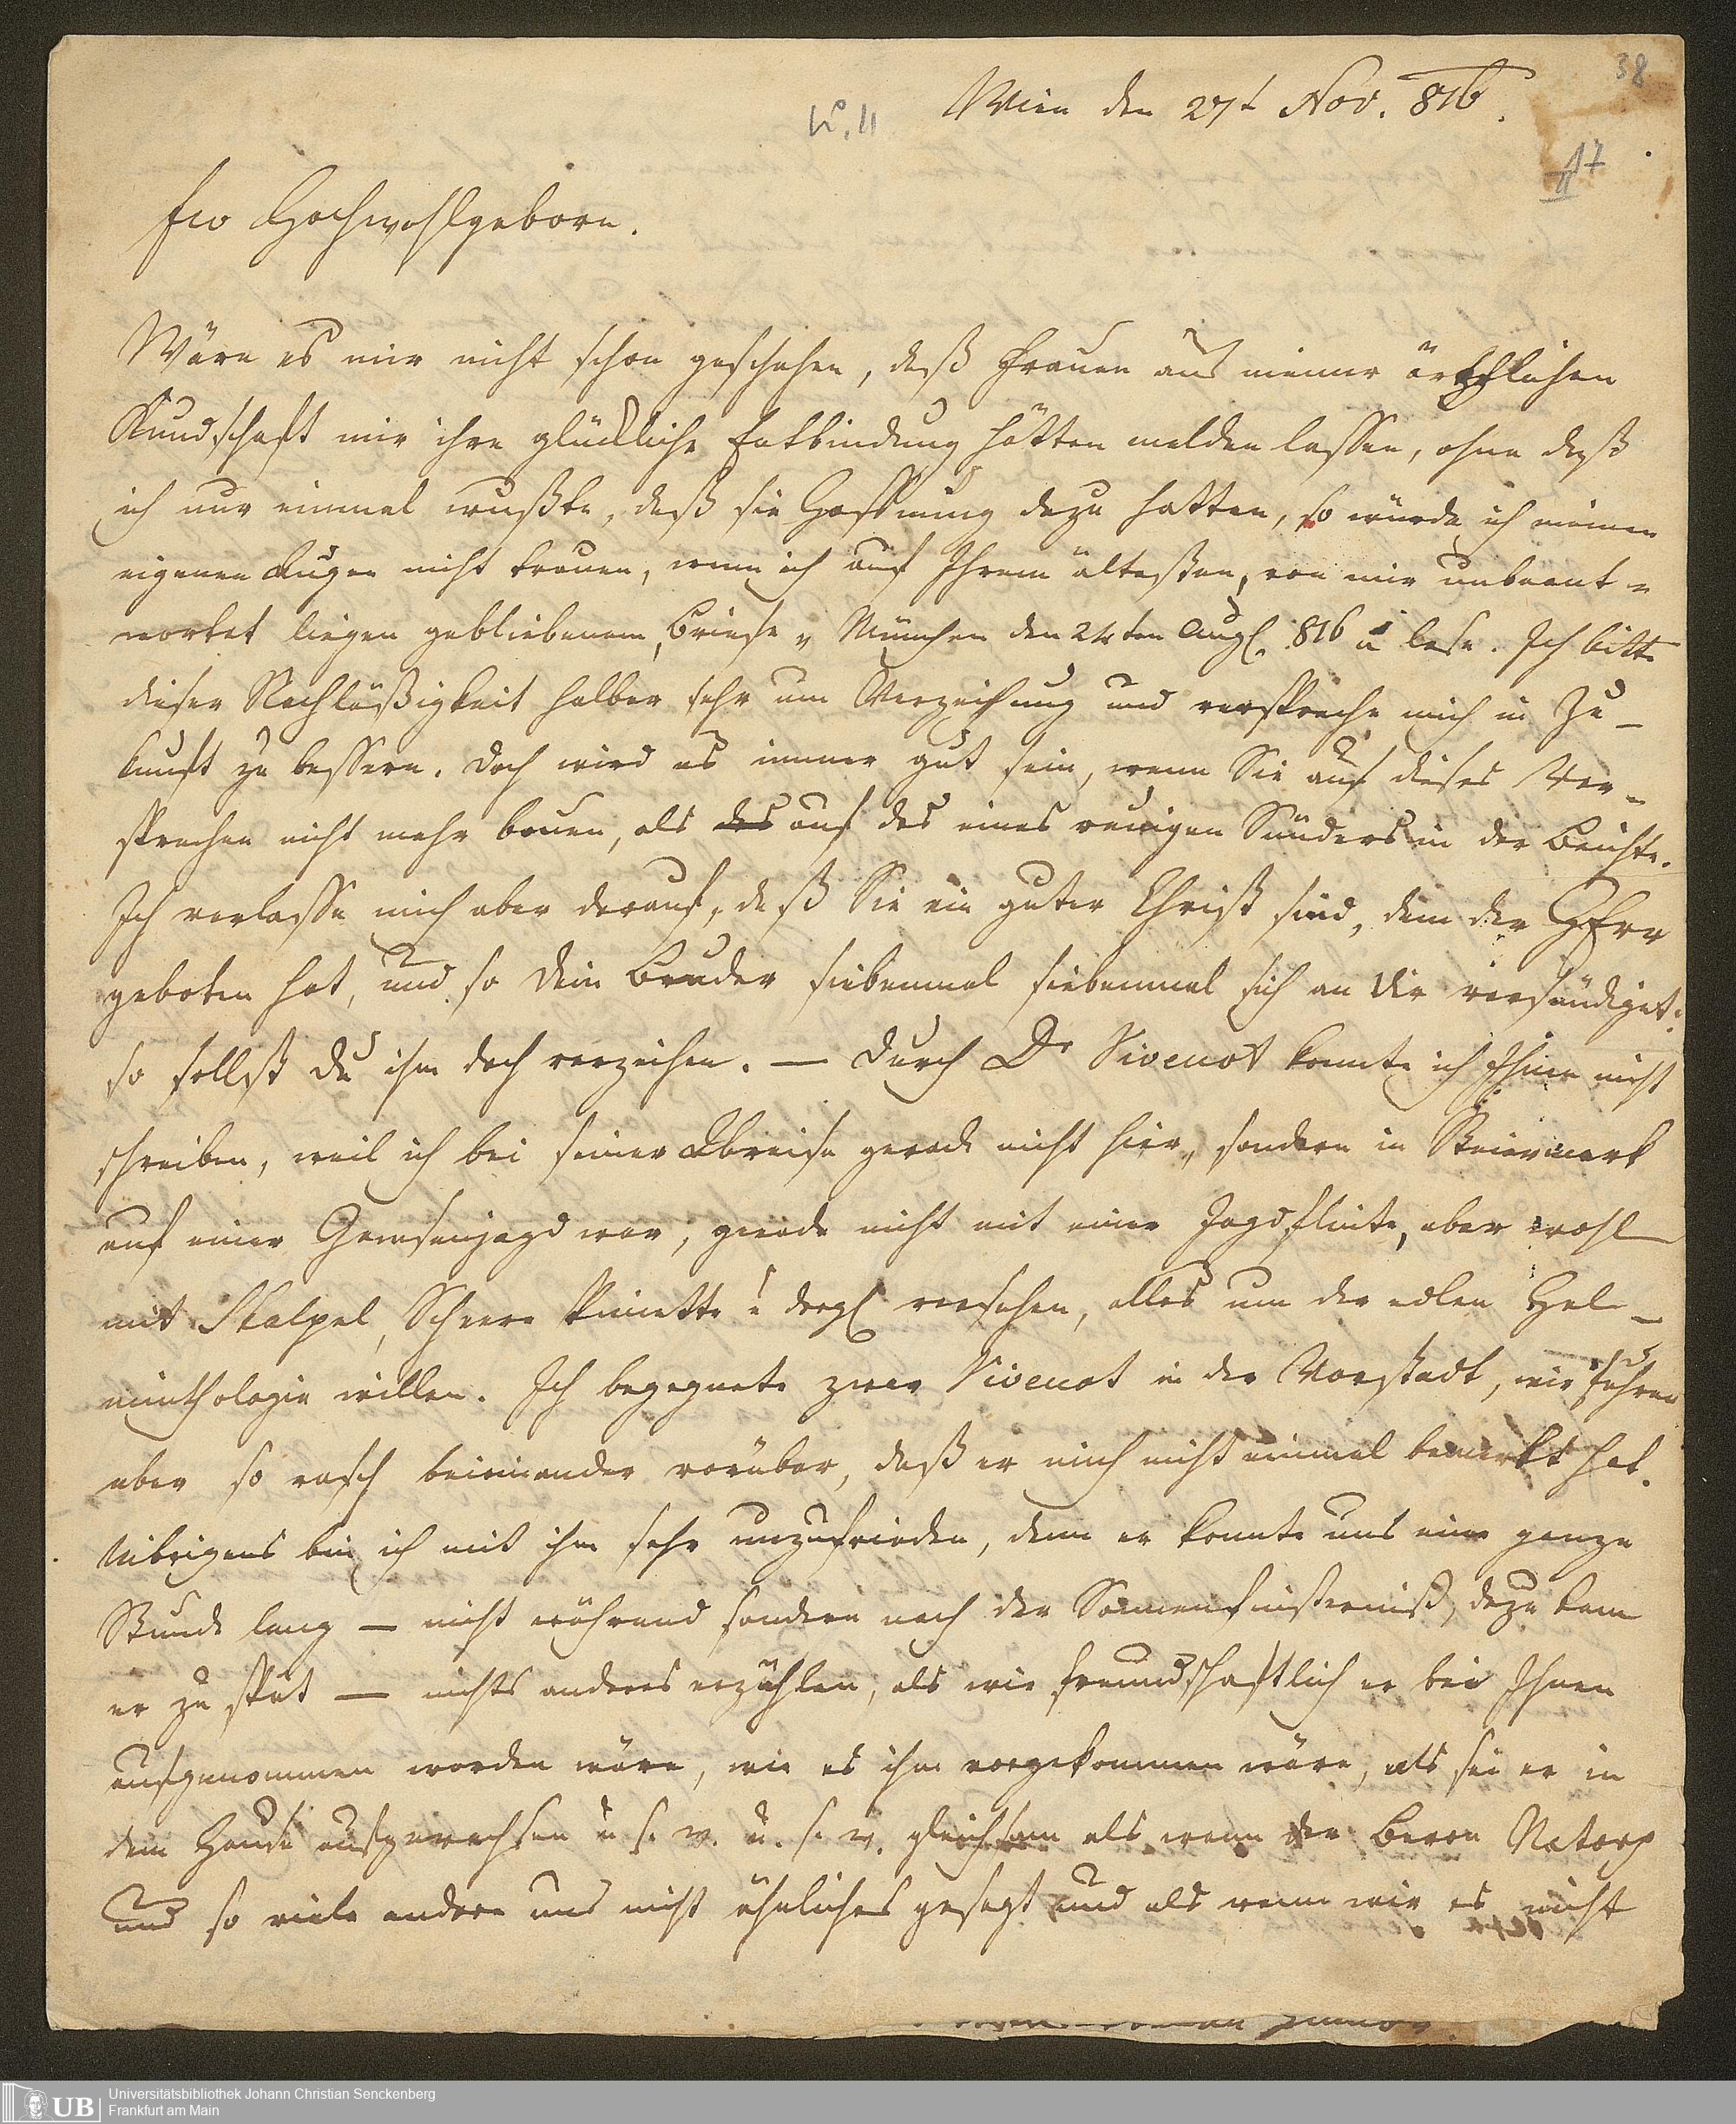 38
Wien den 27t Nov. 816.
N°. 11
17
II
Ew Hochwohlgeborn.
Wäre es mir nicht schon geschehen, daß Frauen aus meiner ärztlichen
Kundschaft mir ihre glückliche Entbindung hätten melden lassen, ohne daß
ich nur einmal wußte, daß sie Hoffnung dazu hatten, so würde ich meinen
eigenen Augen nicht trauen, wenn ich auf Ihrem ältesten, von mir unbeant=
wortet liegen gebliebenem, Briefe „ München den 24ten Aug. 816 “ lese. Ich bitte
dieser Nachläßigkeit halber sehr um Verzeihung und verspreche mich in Zu_
kunft zu bessern. Doch wird es immer gut sein, wenn Sie auf dieses Ver_
sprechen nicht mehr bauen, als des auf das eines reuigen Sünders in der Beichte.
Ich verlasse mich aber darauf, daß Sie ein guter Christ sind, dem der HErr
geboten hat, und so dein Bruder siebenmal siebenmal sich an dir versündiget:
so sollst du ihm doch verzeihen. — Durch Dr Vivenot konnte ich Ihnen nicht
schreiben, weil ich bei seiner Abreise gerade nicht hier, sondern in Steiermark
auf einer Gemsenjagd war, gerade nicht mit einer Jagdflinte, aber wohl
mit Skalpel, Scheere Pincette u dergl versehen, alles um der edlen Hel_
minthologie willen. Ich begegnete zwar Vivenot in der Vorstadt, wir fuhren
aber so rasch beieinander vorüber, daß er mich nicht einmal bemerkt hat.
Uibrigens bin ich mit ihm sehr unzufrieden, denn er konnte uns eine ganze
Stunde lang — nicht während sondern nach der Sonnenfinsterniß, dazu kam
er zu spät — nichts anderes erzählen, als wie freundschaftlich er bei Ihnen
aufgenommen worden wäre, wie es ihm vorgekommen wäre, als sei er in
dem Hause aufgewachsen u. s. w. u. s. w. gleichsam als wenn der Baron Natorp
und so viele andere uns nicht ähnliches gesagt und als wenn wir es nicht
UB
Universitätsbibliothek Johann Christian Senckenberg
Frankfurt am Main